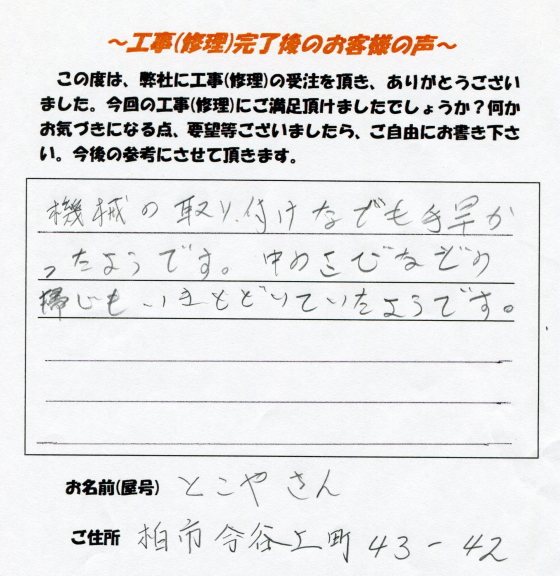 ~工事(修理)完了後のお客様の声~
この度は、弊社に工事(修理)の受注を頂き、ありがとうござい
ました。今回の工事(修理)にご満足頂けましたでしょうか?何か
お気づきになる点、要望等ございましたら、ご自由にお書き下さ
い。今後の参考にさせて頂きます。
機械の取り付けなでも手早か
ったようです。中のさびなぞの
掃じも いきとどいていたようです。
お名前(屋号) とこや さん
ご住所 柏市今谷上町 43-42